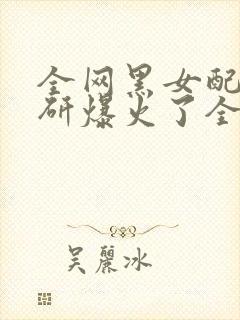 全网黑女配
研爆火了全
吴丽冰